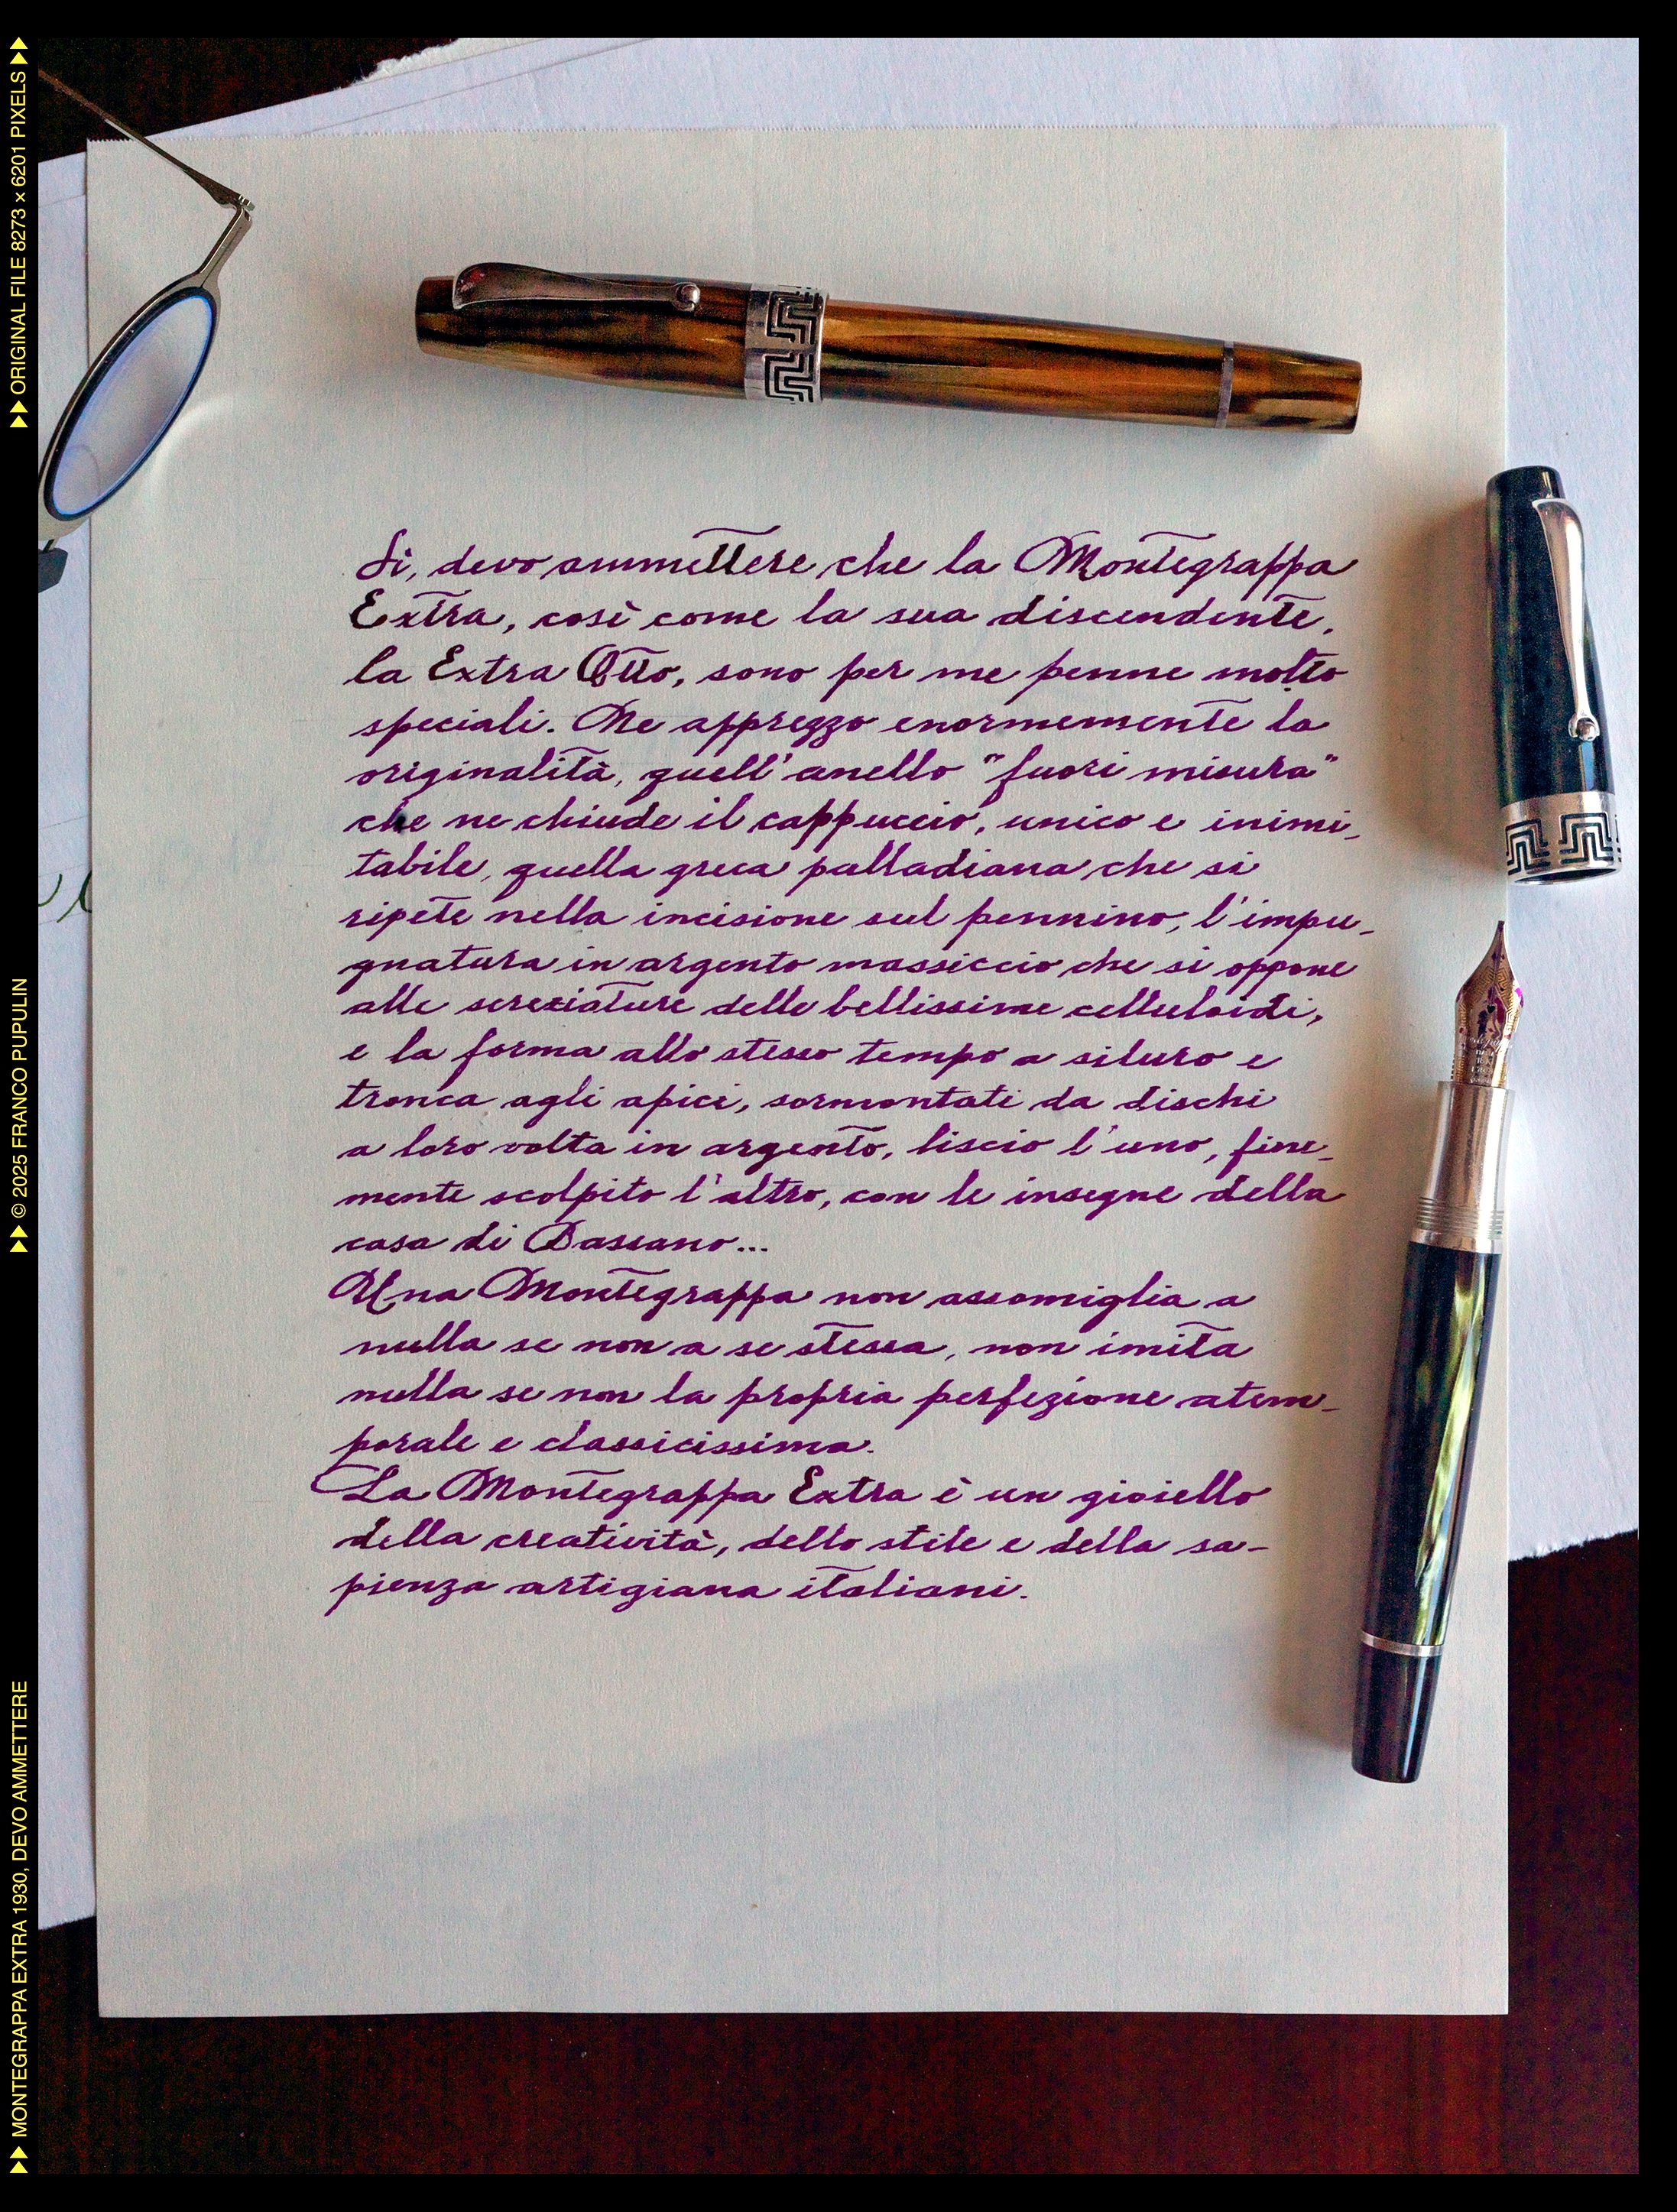 Sì, devo ammettere che la Montegrappa
Extra, così come la sua discendente,
la Extra Otto, sono per me penne molto
speciali. Ne apprezzo enormemente la
originalità, quell'anello "fuori misura"
che ne chiude il cappuccio, unico e inimi-
tabile, quella greca palladiana che si
ripete nella incisione sul pennino, l'impu-
gnatura in argento massiccio che si oppone
alle screziature delle bellissime celluloidi,
e la forma allo stesso tempo a siluro e
tronca agli apici, sormontati da dischi
a loro volta in argento, liscio l'uno, fine-
mente scolpito l'altro, con le insegne della
casa di Bassano...
Una Montegrappa non assomiglia a
nulla se non a se stessa, non imita
nulla se non la propria perfezione atem-
porale e classicissima.
La Montegrappa Extra è un gioiello
della creatività, dello stile e della sa-
pienza artigiana italiani.
MONTEGRAPPA EXTRA 1930, DEVO AMMETTERE
© 2025 FRANCO PUPULIN
ORIGINAL FILE 8273 × 6201 PIXELS